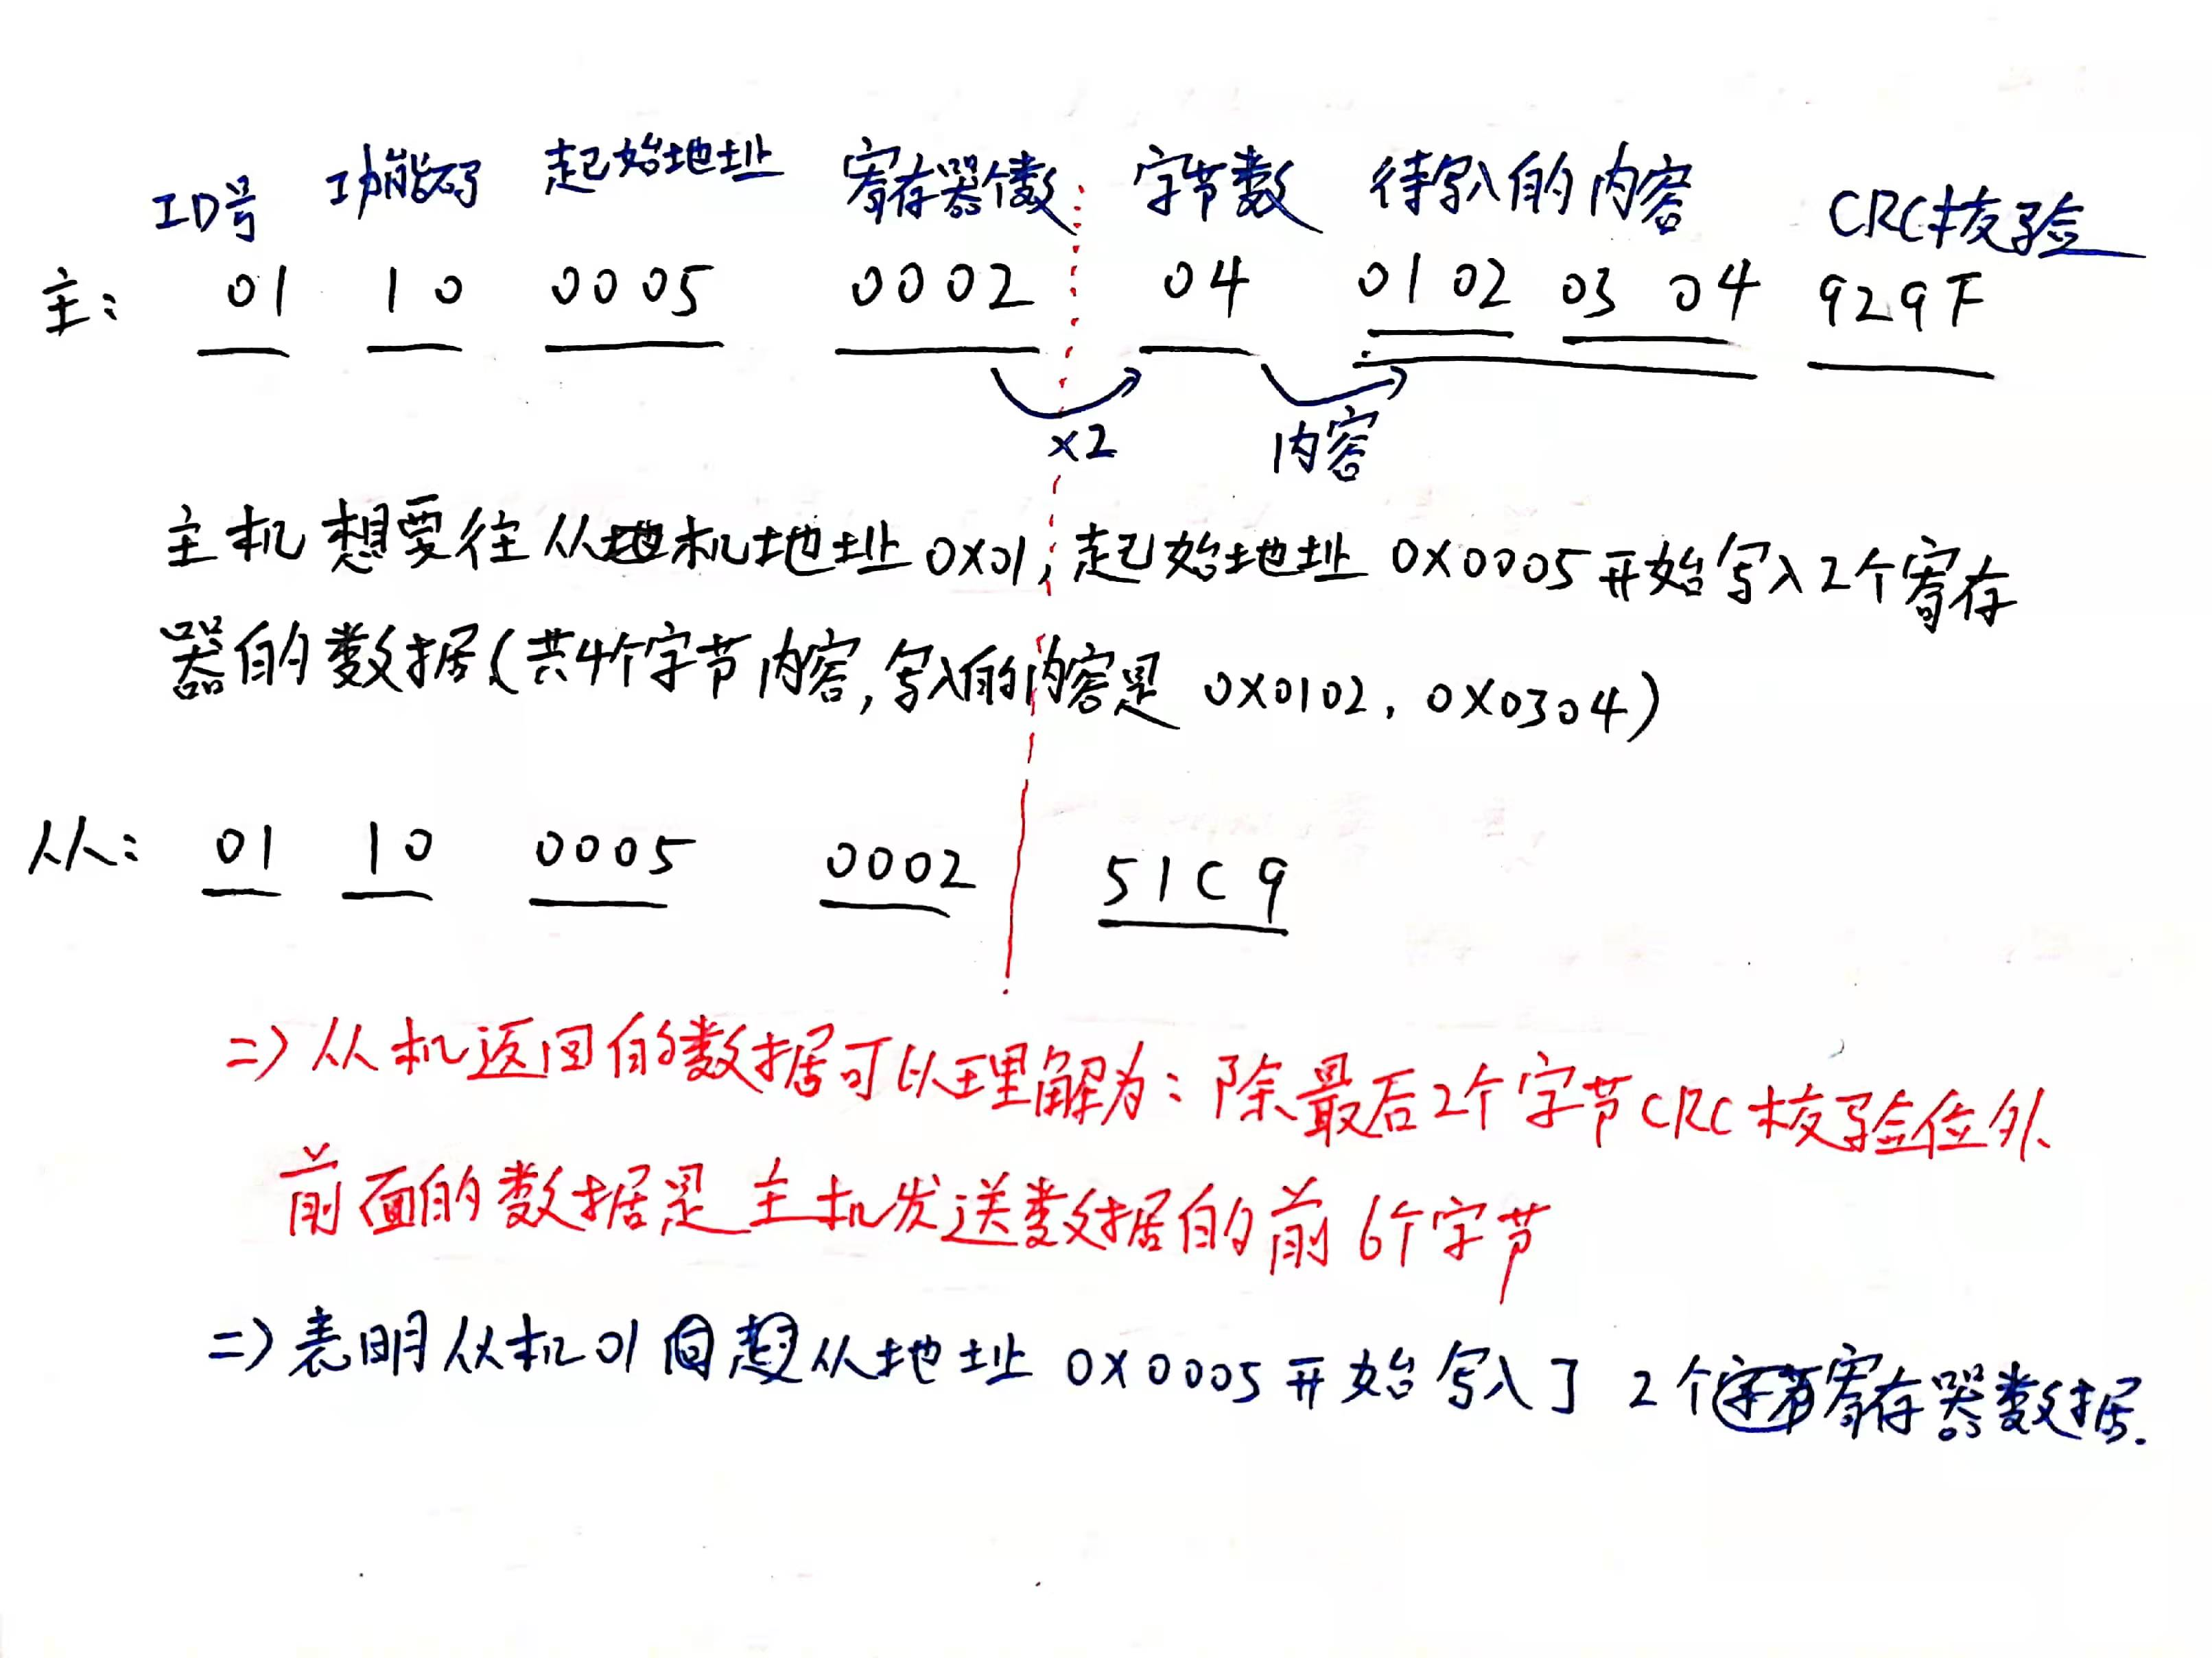 ID号 功能码 起始地址 寄存器个数 字节数 待写入的内容 CRC校验
主: 01 10 0005 0002 04 0102 03 04 929F
×2 内容
主机想要往从机地址0X01,起始地址0X0005开始写入2个寄存
器的数据(共4个字节内容,写入的内容是 0X0102, 0X0304)
从: 01 10 0005 0002 51C9
=> 从机返回的数据可以理解为:除最后2个字节CRC校验位外
前面的数据是主机发送数据的前6个字节
=> 表明从机01 从地址 0X0005开始写入了 2个寄存器数据.